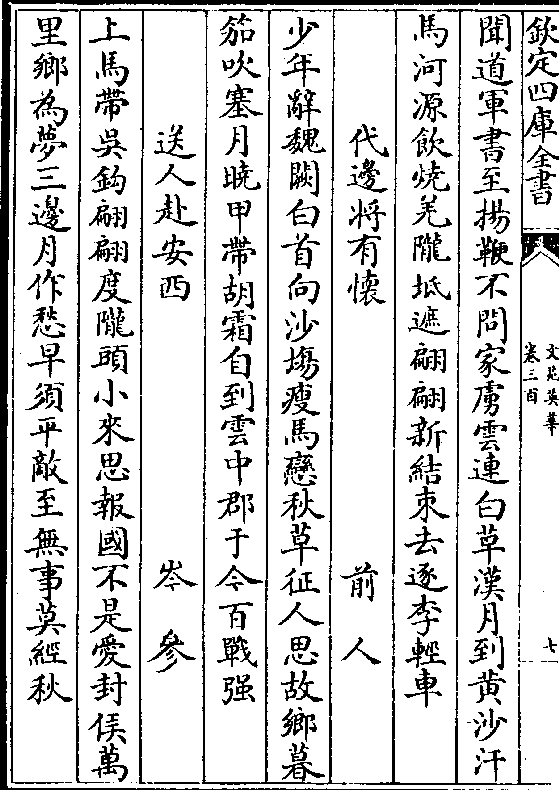 欽定四庫全書
文苑英華
卷三百
七
聞道軍書至揚鞭不問家虜雲連白草漢月到黄沙汗
馬河源飲燒羌隴坻遮翩翩新結束去逐李輕車
代邊將有懷 前人
少年辭魏闕白首向沙場瘦馬戀秋草征人思故鄉暮
笳吹塞月曉甲帶胡霜自到雲中郡于今百戰强
送人赴安西 岑參
上馬帶吳鈎翩翩度隴頭小來思報國不是愛封侯萬
里鄉為夢三邊月作愁早須平敵至無事莫經秋